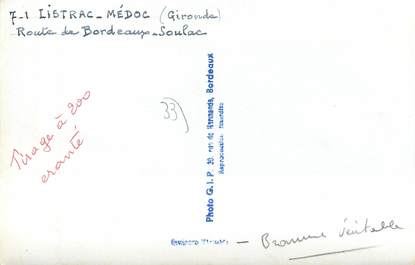 7-1 LISTRAC-MÉDOC (Gironde)
Route de Bordeaux-Soulac
33
Tirage à 200
Photo G.I.P. 30, rue de Bordeaux
Reproduction interdite
véritable